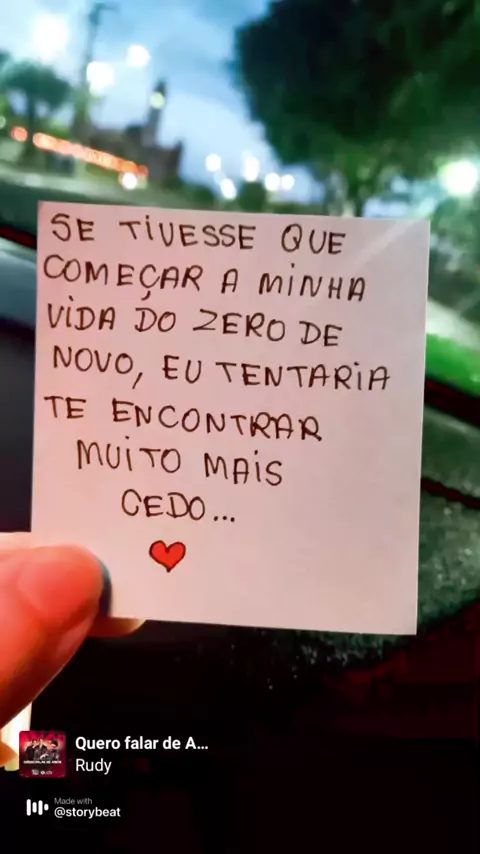 SE TIVESSE QUE
COMEÇAR A MINHA
VIDA DO ZERO DE
NOVO, EU TENTARIA
TE ENCONTRAR
MUITO MAIS
CEDO...
Quero falar de A...
Rudy
Made with
@storybeat